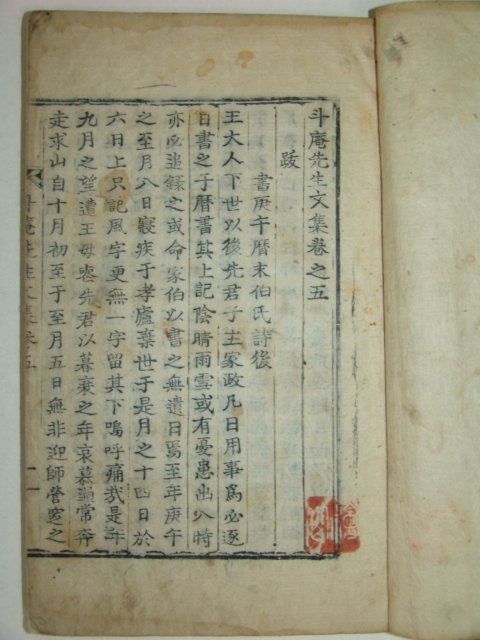 斗庵先生文集卷之五
跋
書庚午曆末伯氏詩後
王大人下世以後先君子主家政凡日用事爲必逐
日書之于曆書其上記陰晴雨雪或有憂患出入時
亦必追錄之或命家伯以書之無遺日焉至年庚午
之至月八日寢疾于孝廬棄世子是月之十四日於
六日上只記風字更無一字留其下嗚呼痛哉是年
九月之望遭王母喪先君以暮衰之年哀慕踰常奔
走求山自十月初至于至月五日無非迎師營窆之
斗庵先生文集卷五